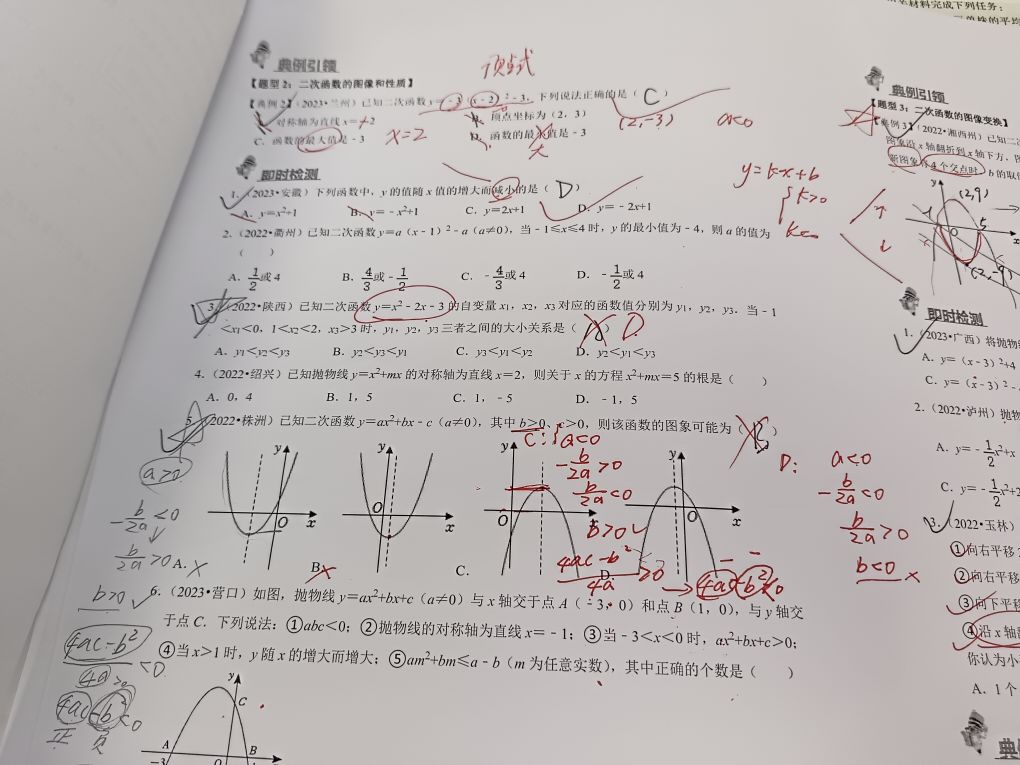 材料完成下列任务：
典例引领
顶点式
【题型2：二次函数的图像和性质】
【典例2】（2023•兰州）已知二次函数y=－3（x－2）²－3，下列说法正确的是（ C ）
A．对称轴为直线x=－2
B．顶点坐标为（2，3）
(2,-3)
a<0
C．函数的最大值是－3
x=2
D．函数的最小值是－3
大
即时检测
1．（2023•安徽）下列函数中，y的值随x值的增大而减小的是（ D ）
A．y=x²+1 B．y=－x²+1 C．y=2x+1 D．y=－2x+1
y=kx+b
k>0
2．（2022•衢州）已知二次函数y=a（x－1）²－a（a≠0），当－1≤x≤4时，y的最小值为－4，则a的值为
（ ）
A．1/2或4 B．4/3或－1/2 C．－4/3或4 D．－1/2或4
3．（2022•陕西）已知二次函数y=x²－2x－3的自变量x₁，x₂，x₃对应的函数值分别为y₁，y₂，y₃．当－1
<x₁<0，1<x₂<2，x₃>3时，y₁，y₂，y₃三者之间的大小关系是（ ） D
A．y₁<y₂<y₃ B．y₂<y₃<y₁ C．y₃<y₁<y₂ D．y₂<y₁<y₃
4．（2022•绍兴）已知抛物线y=x²+mx的对称轴为直线x=2，则关于x的方程x²+mx=5的根是（ ）
A．0，4 B．1，5 C．1，－5 D．－1，5
5．（2022•株洲）已知二次函数y=ax²+bx－c（a≠0），其中b>0、c>0，则该函数的图象可能为（ ）
a>0
-b/2a<0
b/2a>0
b>0
4ac-b²
4a>0
<0
4ac-b²<0
正 负
y
O
x
A．
y
O
x
B．
C: a<0
-b/2a>0
b/2a<0
b>0
4ac-b²/4a>0
4ac-b²<0
y
O
x
C．
y
O
x
D．
D: a<0
-b/2a<0
b/2a>0
b<0
6．（2023•营口）如图，抛物线y=ax²+bx+c（a≠0）与x轴交于点A（－3，0）和点B（1，0），与y轴交
于点C．下列说法：①abc<0；②抛物线的对称轴为直线x=－1；③当－3<x<0时，ax²+bx+c>0；
④当x>1时，y随x的增大而增大；⑤am²+bm≤a－b（m为任意实数），其中正确的个数是（ ）
y
C
A
B
－3
O
典例引领
【题型3：二次函数的图像变换】
【典例3】（2022•湘西州）已知二
图象沿x轴翻折到x轴下方，图
新图象有4个交点时，b的取
y
(2,9)
-1
O
5
x
(2,-9)
即时检测
1．（2023•广西）将抛物线
A．y=（x－3）²+4
C．y=（x－3）²－
2．（2022•泸州）抛物
A．y=－1/2x²+x
C．y=－1/2x²+2
3．（2022•玉林）
①向右平移
②向右平移
③向下平移
④沿x轴
你认为小
A．1个
典